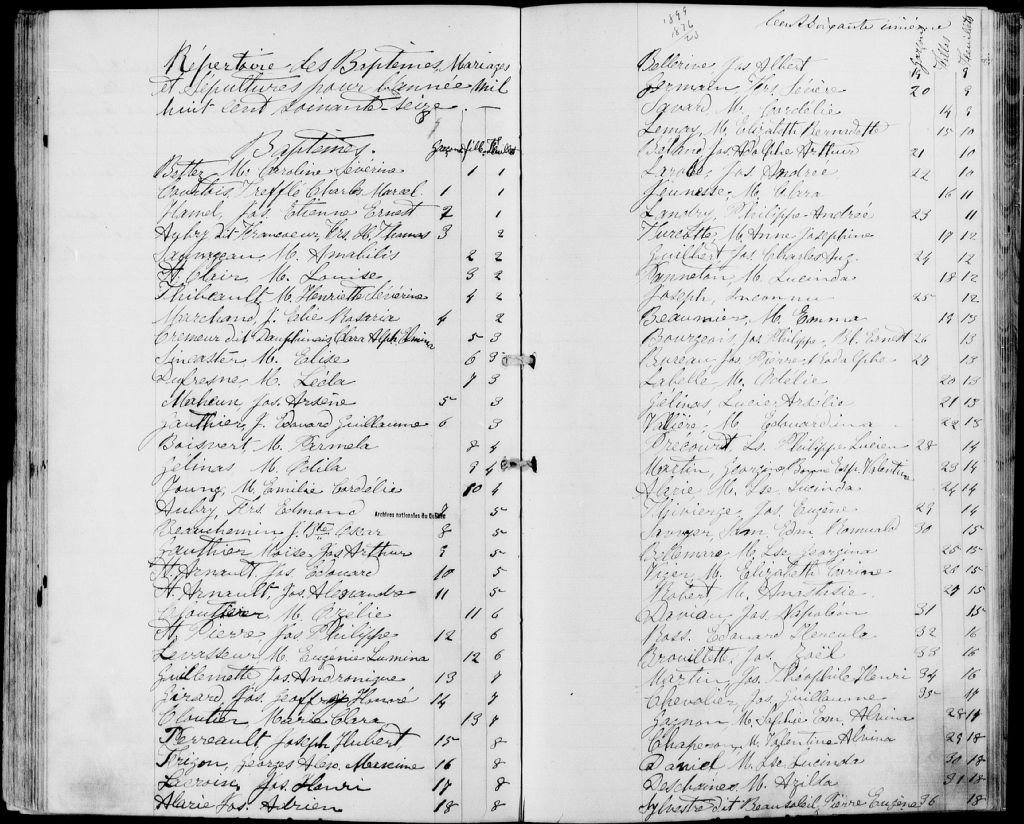 Répertoire des Baptêmes, Mariages
et Sépultures pour l'année mil
huit cent soixante-seize. —
Baptêmes. Garçons filles feuillets
Bettez M. Caroline Sévérine 1 1
Courtois Trefflé Charles Marcel 1 1
Hamel, Jos. Etienne Ernest 2 1
Aubry dit Francoeur, Frs. H. Thomas 3 2
M. Amabilis 2 2
St. Clair, M. Louise 3 2
Thibeault, M. Henriette Sévérine 4 2
Marchand, J. Elie Rosario 4 2
Cremeur dit Dauphinais Clara Alph. Elmina 5 3
M. Elise 6 3
Dufresne, M. Léda 7 3
Maheun Jos. Arsène 5 3
Gauthier, J. Edouard Guillaume 6 3
Boisvert M. Parmela 8 4
Gélinas, M. Odila 9 4
Young, M. Emilie Cordélie 10 4
Aubry, Frs. Edmond 7 5
Archives nationales du Québec
Beauchemin, J. Bte Oscar 8 5
Gauthier Moise Jos Arthur 9 5
St. Arnault, Jos. Edouard 10 5
St. Arnault, Jos. Alexandre 11 5
Cloutier M. Ozélie 11 6
St. Pierre Jos Philippe 12 6
Levasseur M. Eugénie Lumina 12 6
Guillemette Jos. Andronique 13 7
Girard, Jos. Geoff Honoré 14 7
Cloutier, Marie Clara 13 7
Perreault, Joseph Hubert 15 8
Frigon, Georges Alex. Maxime 16 8
Lacroix, Jos. Henri 17 8
Alarie Jos. Adrien 18 8
1899
1876
23
Cent soixante unième
Garçons Filles Feuillets
Bellerive Jos Albert 19 9
Germain Frs Sévère 20 9
Savard, M. Cordélie 14 9
Lemay, M. Elizabeth Bernadette 15 10
Boland Jos Adolphe Arthur 21 10
Jos Andrée 22 10
Jeunesse, M. Clara 16 11
Landry, Philippe-Andrée 23 11
Turcotte, M. Anne Josephine 17 12
Guilbert Jos Charles Aug. 24 12
Panneton M. Lucinda 18 12
Joseph, Inconnu 25 12
Beaumier, M. Emma 19 13
Bourgeois, Jos Philippe, Bt. Ernest 26 13
Bureau, Jos Pierre Rodolphe 27 13
Labelle M. Odélie 20 13
Gélinas, Lucie Arzélie 21 13
Vallière, M. Edouardina 22 13
Précourt, Ls. Philippe Lucien 28 14
Martin, Georgine Valentine 23 14
Alarie M. Lse Lucinda 24 14
Thivierge, Jos. Eugène 29 14
Edm Romuald 30 15
Bellemare M. Lse Georgina 25 15
Viger, M. Elizabeth Corinne 26 15
Hébert M. Anastasie 27 15
Jos. Napoléon 31 15
Ross. Edouard Hercule 32 16
Brouillette, Jos. Zoël 33 16
Martin, Jos. Théophile Henri 34 16
Chevalier, Jos. Guillaume 35 17
Gagnon, M. Sophie Em. Alvina 28 17
M. Valentine Alvina 29 18
Daniel M. Lse Lucinda 30 18
Deschaines M. Azilda 31 18
Sylvestre dit Beausoleil, Pierre Eugène 36 18